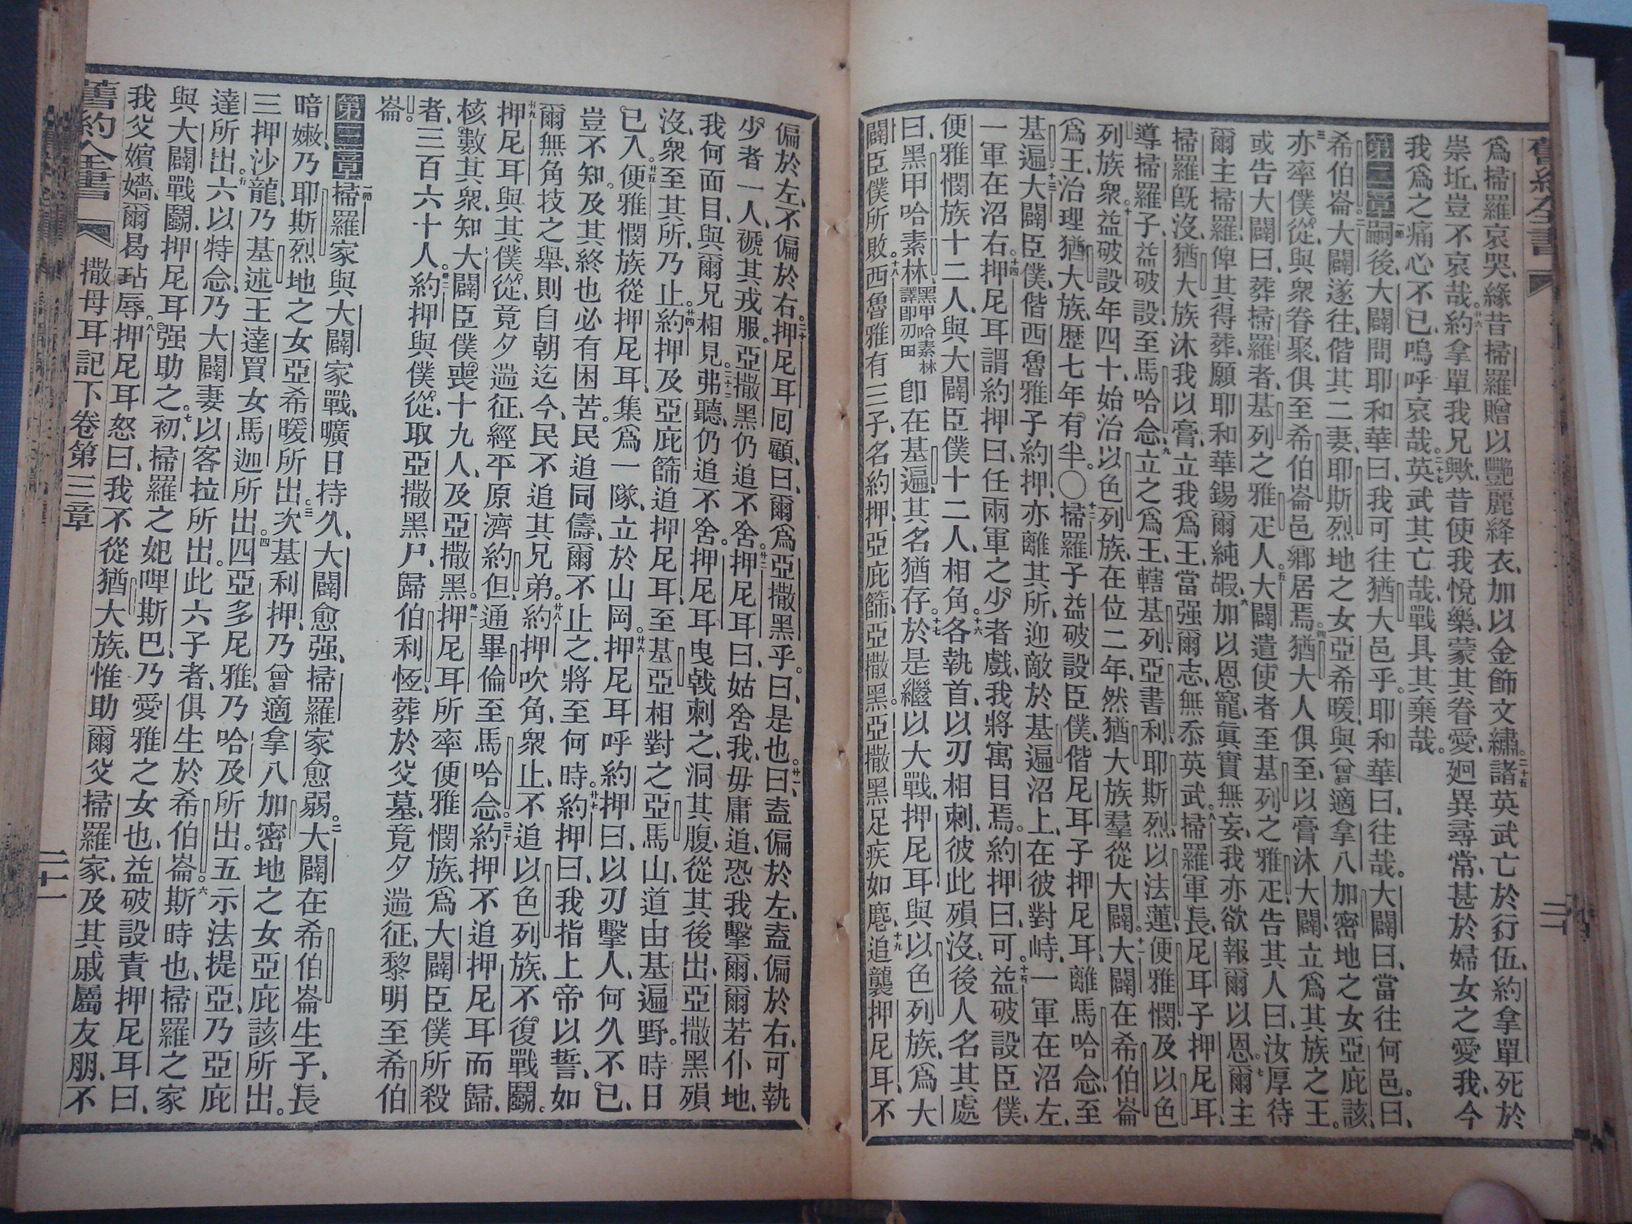 爲掃羅哀哭、緣昔掃羅贈以豔麗絳衣、加以金飾文繡。二十五諸英武亡於行伍、約拿單死於
崇坵、豈不哀哉。廿六約拿單我兄歟、昔使我悅樂、蒙其眷愛、迥異尋常、甚於婦女之愛、我今
我爲之痛心不已、嗚呼哀哉。二十七英武其亡哉、戰具其棄哉。
第二章一嗣後大闢問耶和華曰、我可往猶大邑乎。耶和華曰、往哉。大闢曰、當往何邑。曰、
希伯崙。二大闢遂往、偕其二妻、耶斯烈地之女亞希暖、與曾適拿八加密地之女亞庇該
三亦率僕從、與眾眷聚、俱至希伯崙邑鄉居焉。四猶大人俱至、以膏沐大闢、立爲其族之王。
或告大闢曰、葬掃羅者、基列之雅疋人。五大闢遣使者至基列之雅疋、告其人曰、汝厚待
爾主掃羅、俾其得葬、願耶和華錫爾純嘏。六加以恩寵、真實無妄、我亦欲報爾以恩。七爾主
掃羅既沒、猶大族沐我以膏、立我爲王、當强爾志、無忝英武。八掃羅軍長尼耳子押尼耳、
導掃羅子益破設至馬哈念、九立之爲王、轄基列、亞書利、耶斯烈、以法蓮、便雅憫、及以色
列族眾。十益破設年四十、始治以色列族、在位二年、然猶大族羣從大闢。十一大闢在希伯崙
爲王、治理猶大族、歷七年有半。〇十二掃羅子益破設臣僕、偕尼耳子押尼耳、離馬哈念至
基遍。十三大闢臣僕、偕西魯雅子約押、亦離其所、迎敵於基遍沼上、在彼對峙、一軍在沼左、
一軍在沼右。十四押尼耳謂約押曰、任兩軍之少者戲、我將寓目焉。約押曰、可。十五益破設臣僕、
便雅憫族十二人、與大闢臣僕十二人、相角。十六各執首、以刃相刺、彼此殞沒、後人名其處
曰、黑甲哈素林、黑甲哈素林譯即刃田 卽在基遍、其名猶存。十七於是繼以大戰、押尼耳與以色列族、爲大
闢臣僕所敗。十八西魯雅有三子、名約押、亞庇篩、亞撒黑、亞撒黑足疾如麀、十九追襲押尼耳、不
偏於左、不偏於右。二十押尼耳囘顧、曰、爾爲亞撒黑乎。曰、是也。廿一曰、盍偏於左、盍偏於右、可執
少者一人、褫其戎服。亞撒黑仍追不舍。廿二押尼耳曰、姑舍我、毋庸追、恐我擊爾、爾若仆地、
我何面目與爾兄相見。二十三弗聽、仍追不舍。押尼耳曳戟刺之、洞其腹、從其後出、亞撒黑殞
沒、眾至其所、乃止。廿四約押及亞庇篩追押尼耳、至基亞相對之亞馬山、道由基遍野。時日
已入。廿五便雅憫族從押尼耳、集爲一隊、立於山岡。廿六押尼耳呼約押曰、以刃擊人、何久不已、
豈不知、及其終也、必有困苦。民追同儔、爾不止之、將至何時。廿七約押曰、我指上帝以誓、如
爾無角技之舉、則自朝迄今、民不追其兄弟。廿八約押吹角、眾止、不追以色列族、不復戰鬬。
廿九押尼耳與其僕從、竟夕遄征、經平原、濟約但、通畢倫、至馬哈念。三十約押不追押尼耳而歸、
核數其眾、知大闢臣僕喪十九人、及亞撒黑。卅一押尼耳所率便雅憫族、爲大闢臣僕所殺
者、三百六十人。卅二約押與僕從、取亞撒黑尸、歸伯利恆、葬於父墓、竟夕遄征、黎明至希伯
崙。
第三章一掃羅家與大闢家戰、曠日持久、大闢愈强、掃羅家愈弱。二大闢在希伯崙生子、長
暗嫩、乃耶斯烈地之女亞希暖所出。三次基利押、乃曾適拿八加密地之女亞庇該所出。
三押沙龍、乃基述王達買女馬迦所出。四四亞多尼雅、乃哈及所出。五示法提亞、乃亞庇
達所出。五六以特念、乃大闢妻以客拉所出。此六子者、俱生於希伯崙。六斯時也、掃羅之家
與大闢戰鬬、押尼耳强助之。七初、掃羅之妃哩斯巴、乃愛雅之女也、益破設責押尼耳曰、
我父嬪嬙、爾曷玷辱。八押尼耳怒曰、我不從猶大族、惟助爾父掃羅家、及其戚屬友朋、不
舊約全書 撒母耳記下卷第三章 二十一